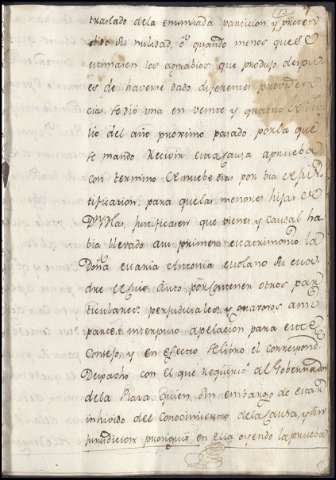 traslado dela enunciada particion, y preten
dio su nulidad, o quando menos que se
enmendasen los agravios que produjo, despu
es de haverse dado diferentes providen
cias, se dio una en veinte y quatro de Ju
lio del año proximo pasado por la que
se mando recivir esta causa aprueba
con termino de nuebe dias por via de jus
tificacion para que las menores hijas de
justificasen que vienes y causal ha
bia llevado asu primero matrimonio la
Doña Maria Antonia su Ma
dre de cuio Auto por contener otros par
ticulares perjudiciales, y gravosos ami
parte se interpuso apelacion para este
Consejo, y en efecto se libro el correspond
Despacho con el que se requirio al Governador
dela Plaza quien sin embargo de estar
inhivido del Conocimiento dela Causa, y sin
jurisdicion prosiguio en ella oyendo la prueba